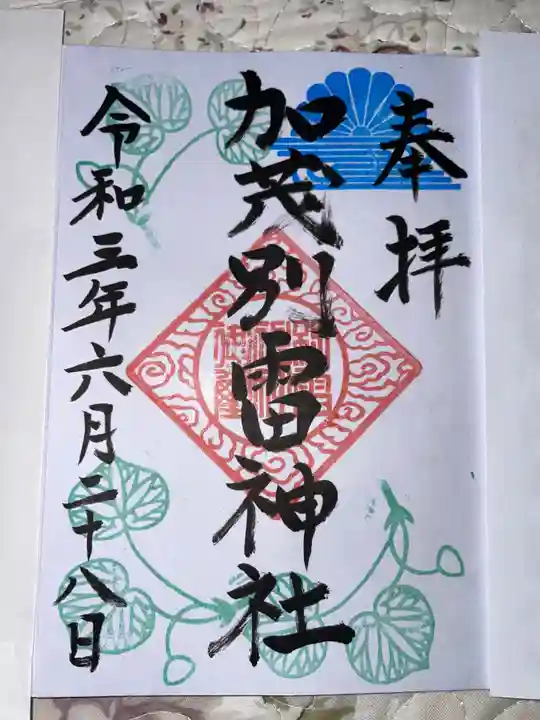 奉拝
加茂別雷神社
令和三年六月二十八日